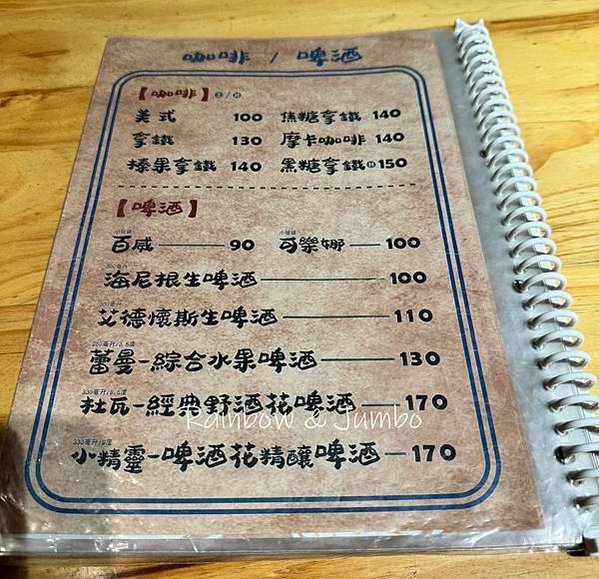 咖啡 / 啤酒
【咖啡】
美式 100 焦糖拿鐵 140
拿鐵 130 摩卡咖啡 140
榛果拿鐵 140 黑糖拿鐵 150
【啤酒】
百威 90 可樂娜 100
海尼根生啤酒 100
艾德懷斯生啤酒 110
蕾曼-綜合水果啤酒 130
330毫升/8.5度
杜瓦-經典野酒花啤酒 170
330毫升/9度
小精靈-啤酒花精釀啤酒 170
Rainbow & Jumbo